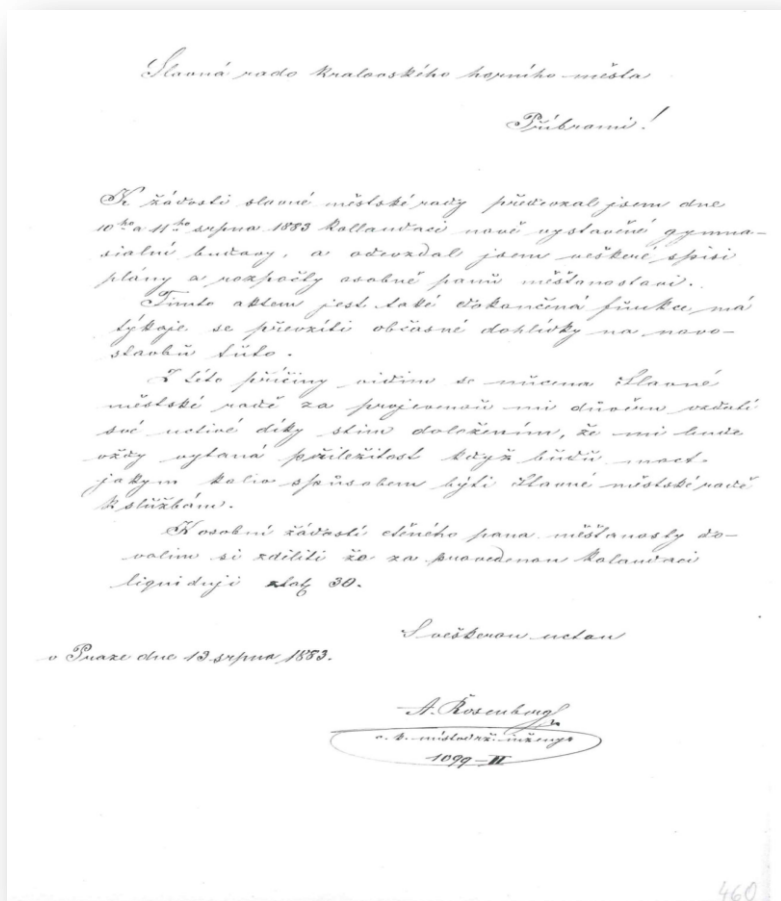 Slavná rado královského horního města
Příbrami!
K žádosti slavné městské rady předevzal jsem dne
10ho a 11ho srpna 1883 kollaudaci nově vystavěné gymna-
sialní budovy, a odevzdal jsem veškeré spisi
plány a rozpočty osobně panů měšťanostovi.
Tímto aktem jest také dokončená fůnkce má
týkaje se převzíti občasné dohlídky na novo-
stavbů tůto.
Z této příčiny vidím se nůcena Slavné
městské radě za projevenoů mi důvěru vzdáti
své uctivé díky stím doložením, že mi bude
vždy vítaná příležitost když bůdů moct
jakým koliv spůsobem býti Slavné městské radě
k slůžbám.
K osobní žádosti ctěného pana měšťanosty do-
volím si zděliti že za provedenou kolaudaci
liquiduji zlat 30.
S veškerou uctou
v Praze dne 13. srpna 1883.
A. Rosenberg
c. k. místodrž. inženýr
1099-II
460